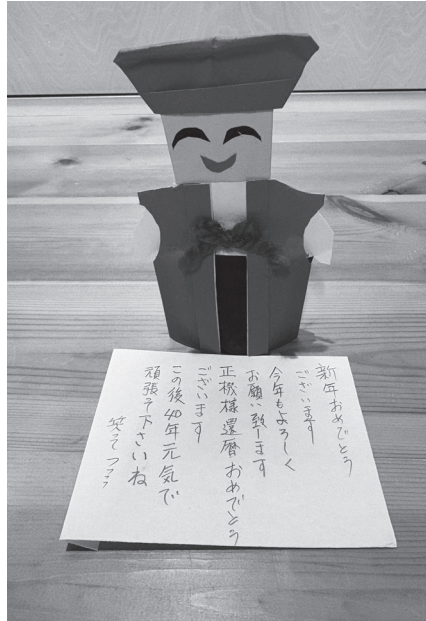 新年おめでとう
ございます
今年もよろしく
お願い致します
正松様還暦おめでとう
ございます
この後40年元気で
頑張って下さいね
笑って